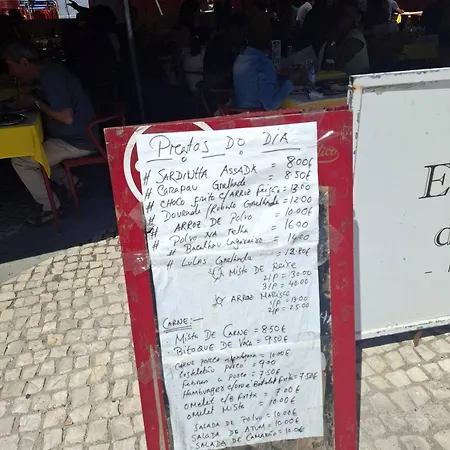 PRATOS DO DIA
# SARDINHA ASSADA = 8.00€
# CARAPAU Grelhado = 8.50€
# CHOCO frito C/ARROZ = 13.00
# Dourada/Robalo Grelhado = 12.00
# ARROZ DE POLVO = 10.00€
# POLVO NA Telha = 16.00
# Bacalhau Lagareiro = 14.00
# LULAS Grelhada = 12.80€
☆ MISTA DE PEIXE
2/P = 30.00
3/P = 40.00
☆ ARROZ MARISCO
1/P = 13.00
2/P = 25.00
CARNE:
MISTA DE CARNE = 8.50€
BITOQUE DE VACA = 9.50€
CARNE PORCO = 10.00€
Costeletas porco = 9.00
Febras porco = 7.50€
Hamburger c/ovo e Batata frita = 7.50€
OMELET c/B frita = 7.00€
OMELET Mista = 10.00€
SALADA DE POLVO = 10.00€
SALADA DE ATUM = 10.00€
SALADA DE CAMARÃO = 10.00€
E